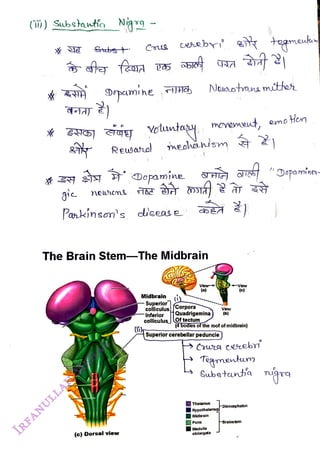 (iii) Substantia Nigra -
* यह Crus cerebri और tegmentum
के बीच स्थित एक काली परत होती है|
* इसमें Dopamine नामक Neurotransmitter
बनता है|
* इसका संबंध voluntary movement, emotion
और Reward mechanism से है|
* इस क्षेत्र में Dopamine बनाने वाली "Dopaminer-
gic neurons नष्ट होने लगती है तो इसे
Parkinson's disease कहते है|
The Brain Stem—The Midbrain
View (a)
View (c)
Midbrain
Superior colliculus
Inferior colliculus
(i)
Corpora
Quadrigemina
Of tectum
(4 bodies of the roof of midbrain)
View (b)
(ii)
Superior cerebellar peduncle
→ Crura cerebri
→ Tegmentum
→ Substantia nigra
Thalamus
Hypothalamus
Diencephalon
Midbrain
Pons
Medulla oblongata
Brainstem
(c) Dorsal view
IRFANULLAH